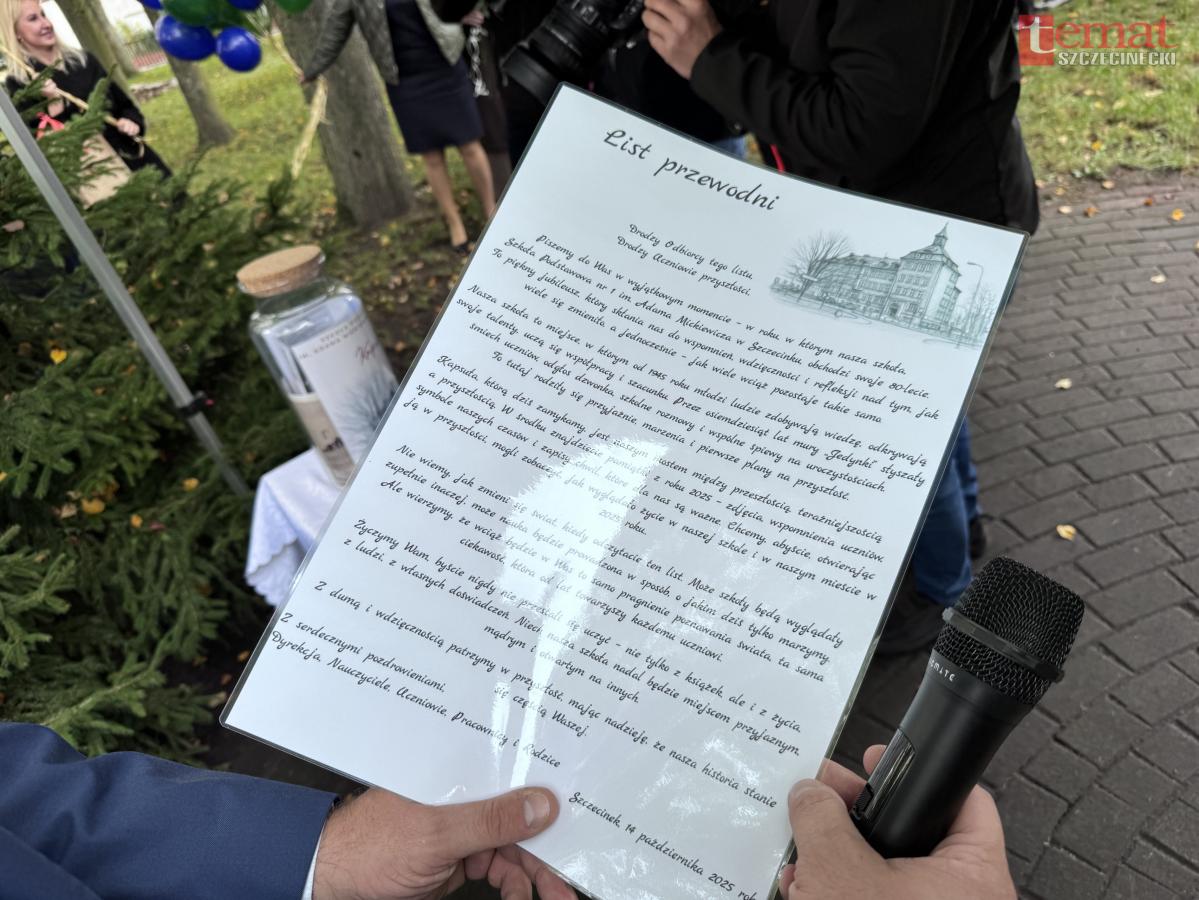 temat
SZCZECINECKI
List przewodni
Drodzy Odbiorcy tego listu,
Drodzy Uczniowie przyszłości,
Piszemy do Was w wyjątkowym momencie - w roku, w którym nasza szkoła,
Szkoła Podstawowa nr 1 im. Adama Mickiewicza w Szczecinku, obchodzi swoje 80-lecie.
To piękny jubileusz, który skłania nas do wspomnień, wdzięczności i refleksji nad tym, jak
wiele się zmieniło, a jednocześnie - jak wiele wciąż pozostaje takie samo.
Nasza szkoła to miejsce, w którym od 1945 roku młodzi ludzie zdobywają wiedzę, odkrywają
swoje talenty, uczą się współpracy i szacunku. Przez osiemdziesiąt lat mury "Jedynki" słyszały
śmiech uczniów, odgłos dzwonka, szkolne rozmowy i wspólne śpiewy na uroczystościach.
To tutaj rodziły się przyjaźnie, marzenia i pierwsze plany na przyszłość.
Kapsuła, którą dziś zamykamy, jest naszym mostem między przeszłością, teraźniejszością
a przyszłością. W środku znajdziecie pamiątki z roku 2025 - zdjęcia, wspomnienia uczniów,
symbole naszych czasów i zapisy chwil, które dla nas są ważne. Chcemy, abyście, otwierając
ją w przyszłości, mogli zobaczyć, jak wyglądało życie w naszej szkole i w naszym mieście w
2025 roku.
Nie wiemy, jak zmieni się świat, kiedy odczytacie ten list. Może szkoły będą wyglądały
zupełnie inaczej, może nauka będzie prowadzona w sposób, o jakim dziś tylko marzymy.
Ale wierzymy, że wciąż będzie w Was to samo pragnienie poznawania świata, ta sama
ciekawość, która od lat towarzyszy każdemu uczniowi.
Życzymy Wam, byście nigdy nie przestali się uczyć - nie tylko z książek, ale i z życia,
z ludzi, z własnych doświadczeń. Niech nasza szkoła nadal będzie miejscem przyjaznym,
mądrym i otwartym na innych.
Z dumą i wdzięcznością patrzymy w przyszłość, mając nadzieję, że nasza historia stanie
się częścią Waszej.
Z serdecznymi pozdrowieniami,
Dyrekcja, Nauczyciele, Uczniowie, Pracownicy i Rodzice
Szczecinek, 14 października 2025 rok